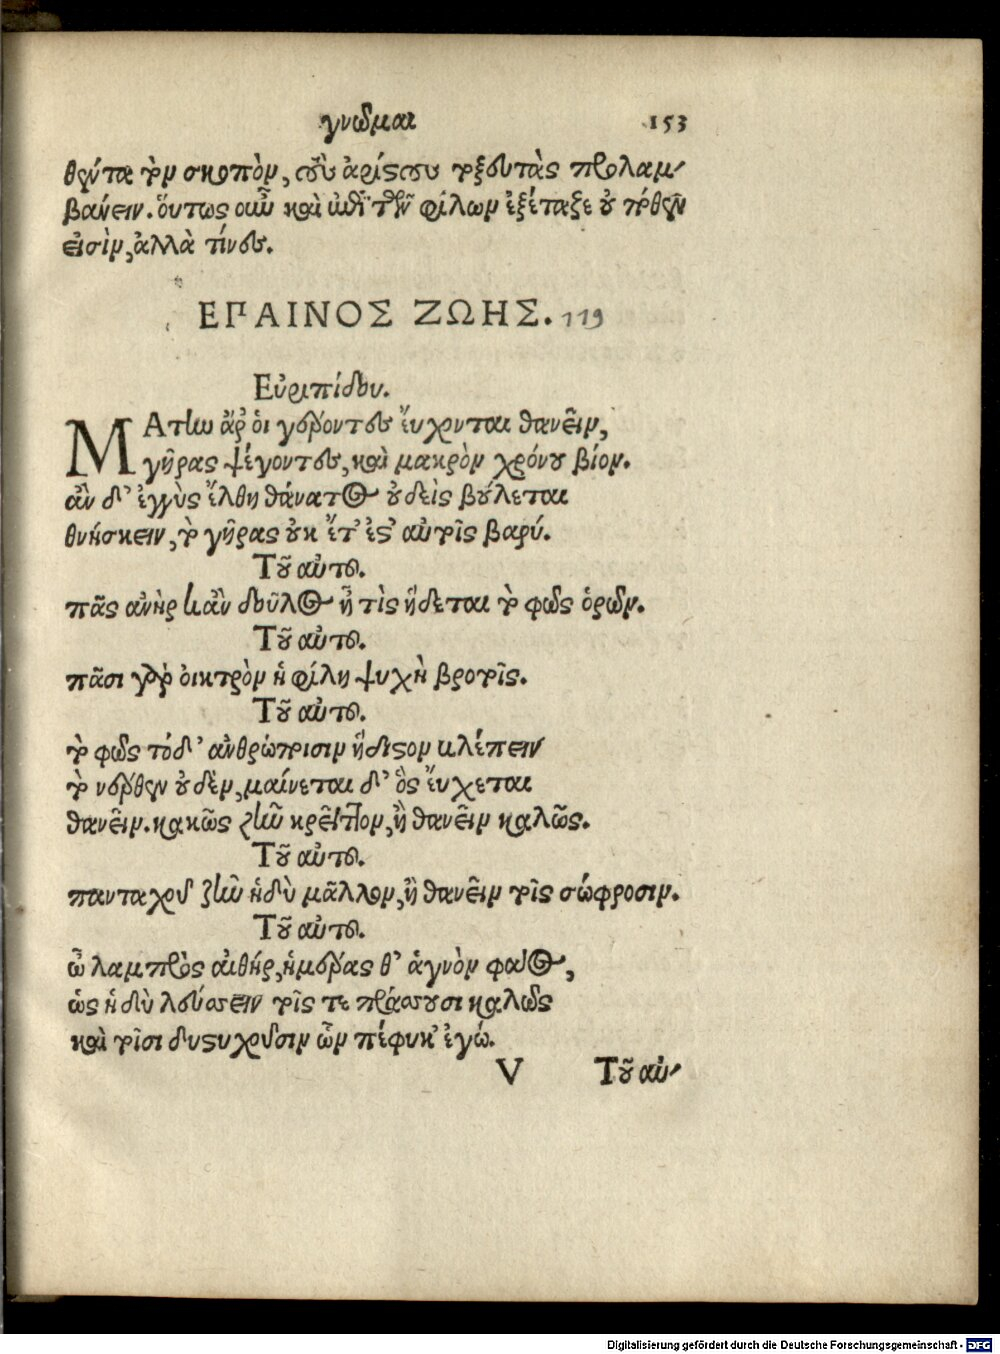 γνῶμαι 153
θῶντα τὸν σκοπὸν, τοῦ ἀρίστου τοξευτὰς προλαμ-
βάνειν. οὕτως οὖν καὶ ἐπὶ τῶν φίλων ἐξέταζε οὐ πόθεν
εἰσὶν, ἀλλὰ τίνες.
ΕΠΑΙΝΟΣ ΖΩΗΣ. 119
Εὐριπίδου.
ΜΑτην ἄρ' οἱ γέροντες ἔυχονται θανεῖν,
γῆρας ψέγοντες, καὶ μακρὸν χρόνου βίον.
ἂν δ' ἐγγὺς ἔλθη θάνατος οὐδεὶς βούλεται
θνήσκειν, τὸ γῆρας οὐκ ἔτ' ἐς' αὐτοῖς βαρύ.
Τοῦ αὐτοῦ.
πᾶς ἀνὴρ κἂν δοῦλος ἦ τὶς ἥδεται τὸ φῶς ὁρῶν.
Τοῦ αὐτοῦ.
πᾶσι γὰρ οἰκτρὸν ἡ φίλη ψυχὴ βροτοῖς.
Τοῦ αὐτοῦ.
τὸ φῶς τόδ' ἀνθρώποισιν ἥδιστον κλέπειν
τὸ νέρθεν οὐδὲν, μαίνεται δ' ὃς ἔυχεται
θανεῖν. κακῶς ζῆν κρεῖττον, ἢ θανεῖν καλῶς.
Τοῦ αὐτοῦ.
πανταχοῦ ζῆν ἡδὺ μᾶλλον, ἢ θανεῖν τοῖς σώφροσιν.
Τοῦ αὐτοῦ.
ὦ λαμπρὸς αἰθὴρ, ἡμέρας θ' ἁγνὸν φάος,
ὡς ἡδὺ λεύσσειν τοῖς τε πράσσουσι καλῶς
καὶ τοῖσι δυστυχοῦσιν ὧν πέφυκ' ἐγώ.
V Τοῦ αὐ-
Digitalisierung gefördert durch die Deutsche Forschungsgemeinschaft - DFG